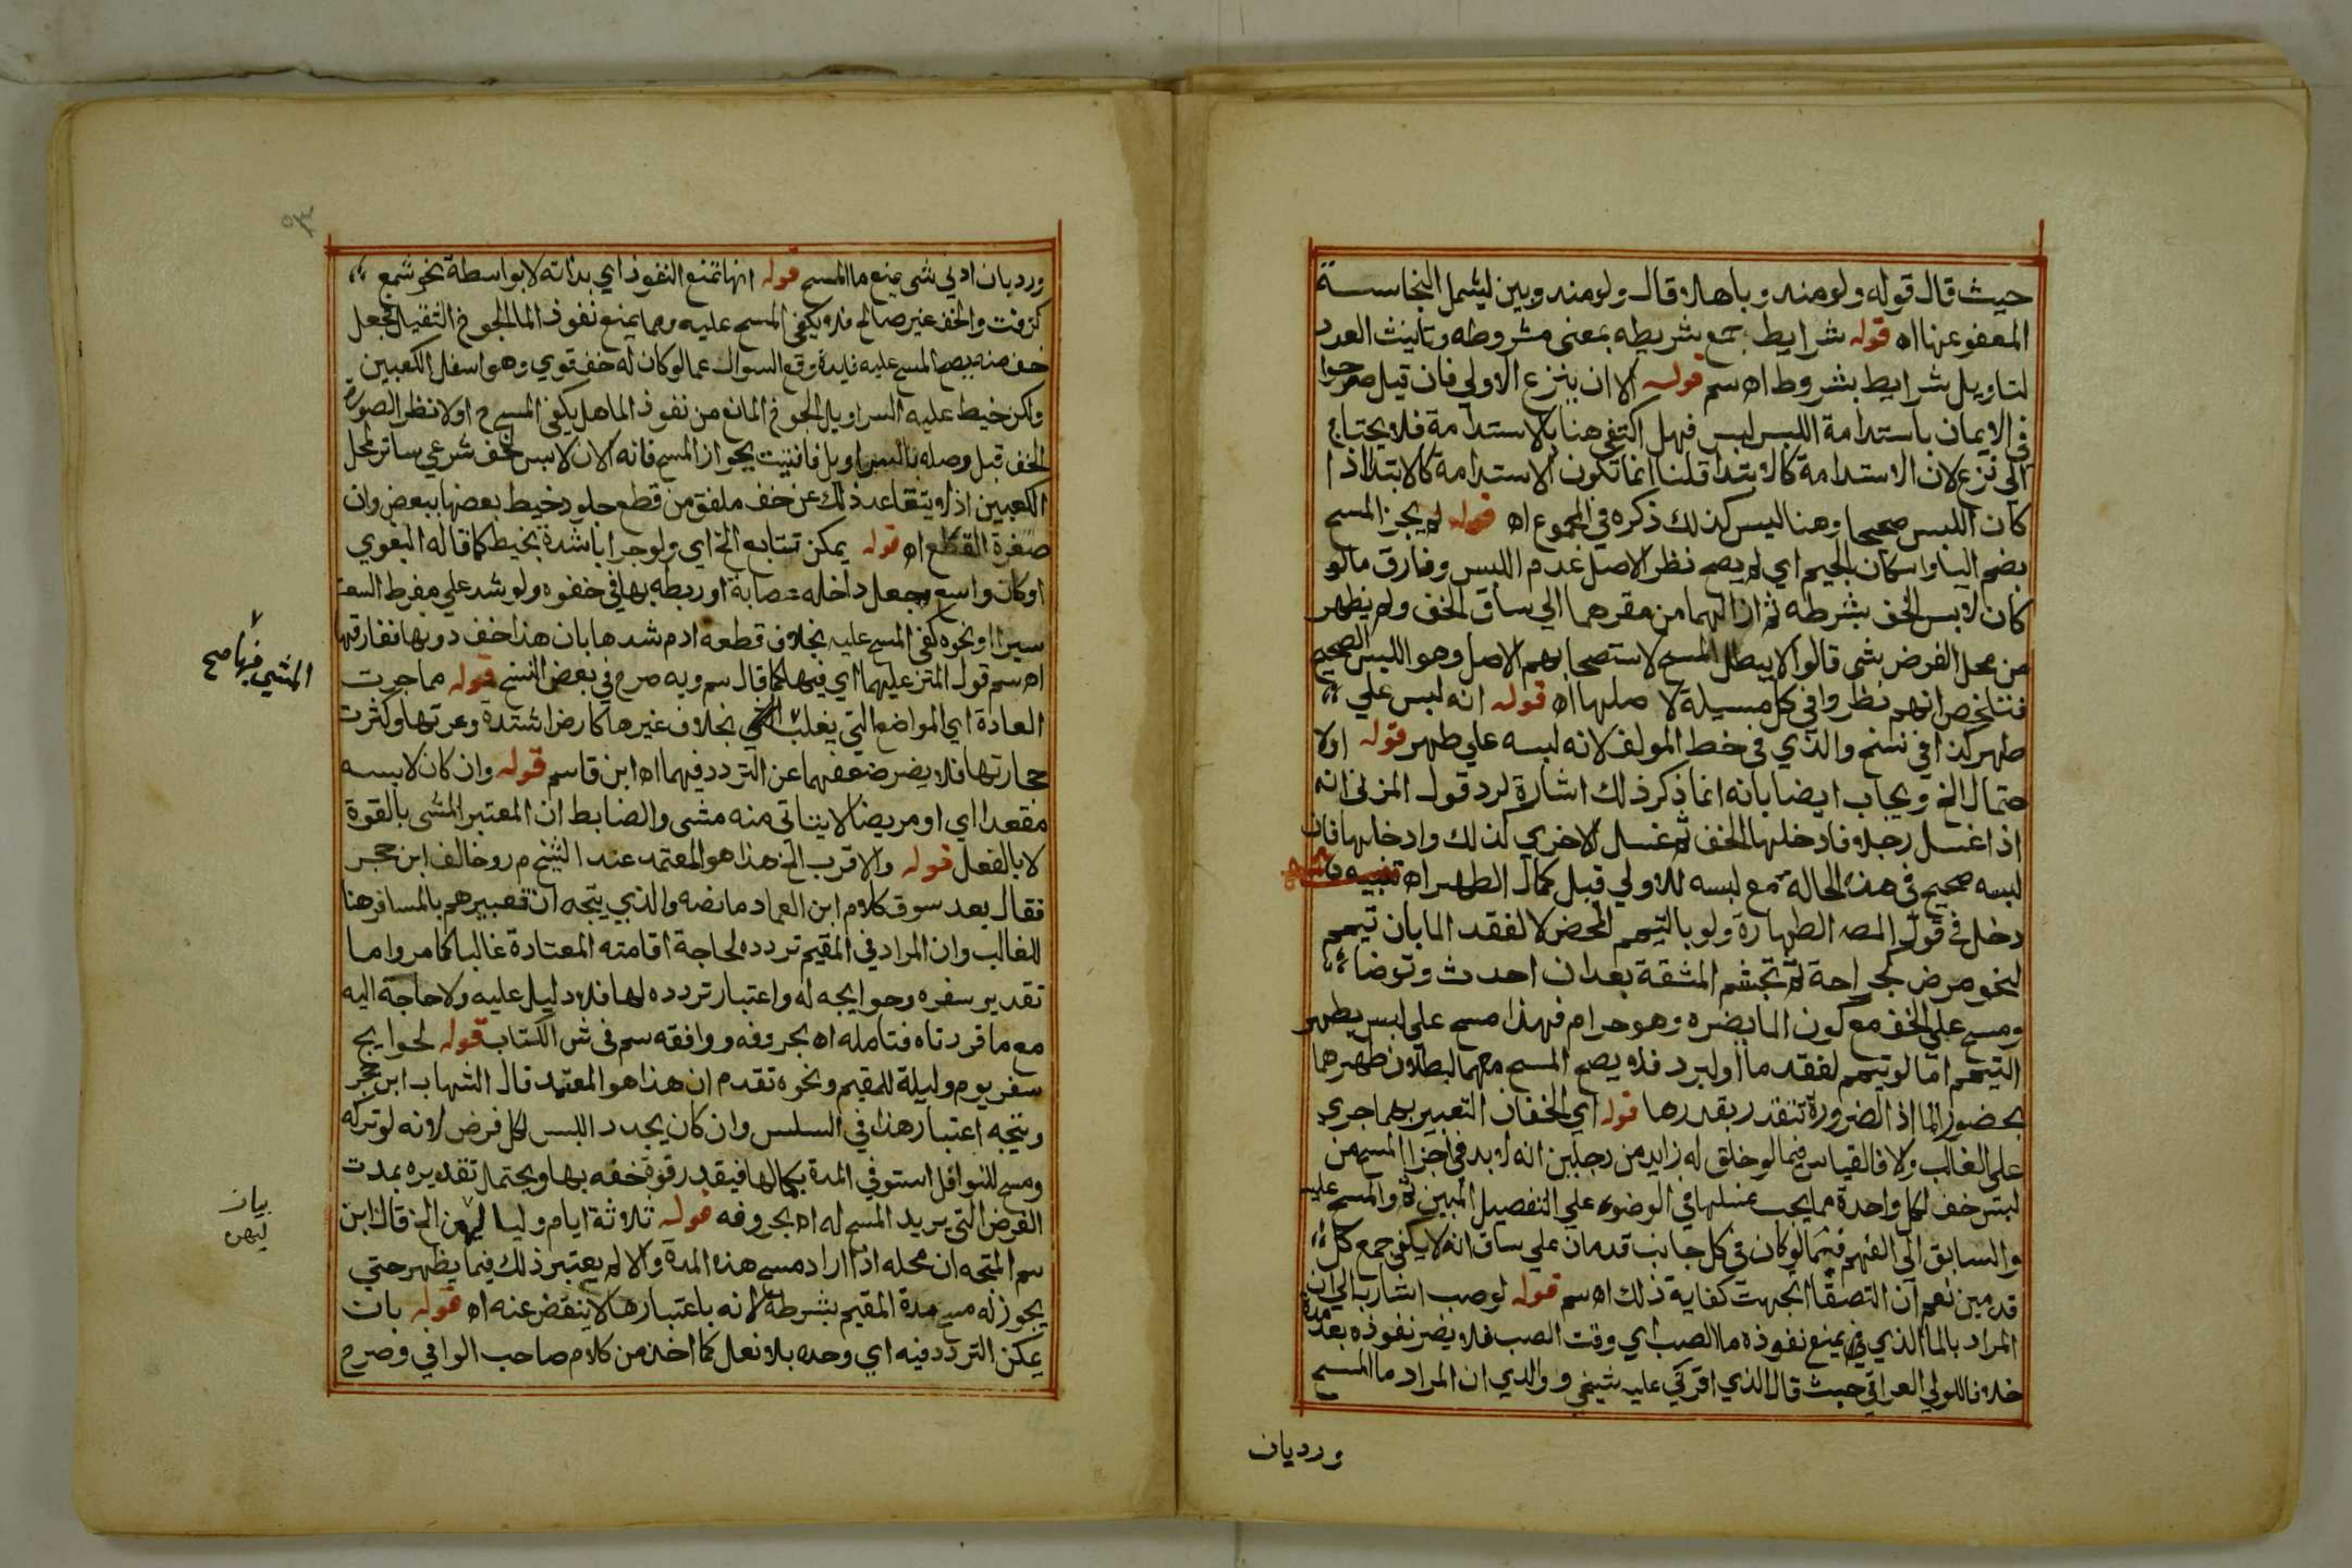 حيث قال قوله ولو منه وباهلا قال ولو منه وبين ليشمل النجاسة
المعفو عنها اه قوله شرايط جمع شريطه بمعنى مشروطه وتانيث العدد
لتاويل شرايط بشروط اه سم قوله الا ان ينزع الاولي فان قيل صرحوا
في الايمان باستدامة اللبس لبس فهل اكتفي هنا بالاستدامة فلا يحتاج
الى نزع لان الاستدامة كالابتدا قلنا انما تكون الاستدامة كالابتدا اذا
كان اللبس صحيحا وهنا ليس كذلك ذكره في المجموع اه قوله لم يجز المسح
بضم اليا واسكان الجيم اي لم يصح نظرا لاصل عدم اللبس وفارق ما لو
كان لابس الخف بشرطه ثم ازالهما من مقرهما الي ساق الخف ولم يظهر
من محل الفرض شى قالوا لا يبطل المسح لاستصحابهم الاصل وهو اللبس الصحيح
فتلخص انهم نظروا في كل مسيلة لاصلها اه قوله انه لبس علي
طهر كذا في نسخ والذي في خط المولف لانه لبسه علي طهر قوله او لا
حتمال الخ ويجاب ايضا بانه انما ذكر ذلك اشارة لرد قول المزني انه
اذا غسل رجلا فادخلها الخف ثم غسل الاخري كذلك وادخلها فان
لبسه صحيح في هذه الحالة مع لبسه للاولي قبل كمال الطهر اه تنبيه
دخل في قول المصه الطهارة ولو بالتيمم المحض لا لفقد الما بان تيمم
لنحو مرض لجراحة ثم تجشم المشقة بعد ان احدث وتوضا
ومسح علي الخف مع كون الما يضره وهو حرام فهذا مسح علي لبس بطهر
التيمم اما لو تيمم لفقد ما او لبرد فلا يصح المسح بهما لبطلان طهرهما
بحضور الما اذ الضرورة تتقدر بقدرها قوله اي الخفان التعبير بهما جري
على الغالب ولا فالقياس فيما لو خلق له زايد من رجلين انه لا بد في اجزا المسح من
لبس خف لكل واحدة مما يجب غسلها في الوضوء علي التفصيل المبين ثم والمسح عليه
والسابق الى الفهم فيما لو كان في كل جانب قدمان علي ساق انه لا يكفي جمع كل
قدمين نعم ان التصقا اتجهت كفاية ذلك اه سم قوله لو صب اشار به الي ان
المراد بالما الذي يمنع نفوذه ما الصب اي وقت الصب فلا يضر نفوذه بعد مدة
خلافا للولي العراقي حيث قال الذي اقر في عليه شيخي ووالدي ان المراد ما المسح
ورد بان
ورد بان ادني شى يمنع ما المسح قوله انها تمنع النفوذ اي بذاته لا بواسطة نحو شمع
كزفت والخف غير صالح فلا يكفي المسح عليه ومما يمنع نفوذ الما الجوخ الثقيل فجعل
خف منه يصح المسح عليه فايدة وقع السوال عما لو كان له خف قوي وهو اسفل الكعبين
ولكن خيط عليه السراويل الجوخ المانع من نفوذ الما هل يكفي المسح ح او لا نظرا لصورة
الخف قبل وصله بالسراويل فافتيت بجواز المسح فانه الان لابس خف شرعي ساتر لمحل
الكعبين اذ لا يتقاعد ذلك عن خف ملفق من قطع جلود خيط بعضها ببعض وان
صغرة القطع اه قوله يمكن تتابع الخ اي ولو جرابا شده بخيط كما قاله البغوي
او كان واسع وجعل داخله عصابة او ربطه بها في خفوه ولو شد علي مفرط السعة
سيرا او نحوه كفي المسح عليه بخلاف قطعه ادم شدها بان هذا خف دونها ففارقتها
اه سم قول المتن عليهما اي فيهما كما قال سم وبه صرح في بعض النسخ قوله مما جرت
العادة اي المواضع التي يغلب بخلاف غيرها كارض اشتدة وعرتها وكثرت
حجارتها فلا يضر ضعفهما عن التردد فيهما اه ابن قاسم قوله وان كان لابسه
مقعدا اي او مريضا لا يتاتى منه مشى والضابط ان المعتبر المشى بالقوة
لا بالفعل قوله والاقرب الخ هذا هو المعتمد عند الشيخ م ر وخالف ابن حجر
فقال بعد سوق كلام ابن العماد ما نصه والذي يتجه ان تعبيرهم بالمسافر هنا
للغالب وان المراد في المقيم تردده لحاجة اقامته المعتادة غالبا كما مر واما
تقدير سفره وحوايجه له واعتبار تردده لها فلا دليل عليه ولا حاجة اليه
مع ما قررتاه فتامله اه بحروفه ووافقه سم في ش الكتاب قوله لحوايج
سفر يوم وليلة للمقيم ونحوه تقدم ان هذا هو المعتمد قال الشهاب ابن حجر
ويتجه اعتبار هذا في السلس وان كان يجدد اللبس لكل فرض لانه لو تركه
ومسح للنوافل استوفي المدة بكمالها فيقدر قوة خفه بها ويحتمل تقديره بمدت
الفرض التي يريد المسح له اه بحروفه قوله ثلاثة ايام وليالهن الخ قال ابن
سم المتجه ان محله اذا اراد مسح هذه المدة والا لم يعتبر ذلك فيما يظهر حتي
يجوز له مسح مدة المقيم بشرطها لانه باعتبارها لا ينقض عنه اه قوله بان
يمكن التردد فيه اي وحده بلا نعل كما اخذ من كلام صاحب الوافي وصرح
المشي فيها صح
بيان
ليهن